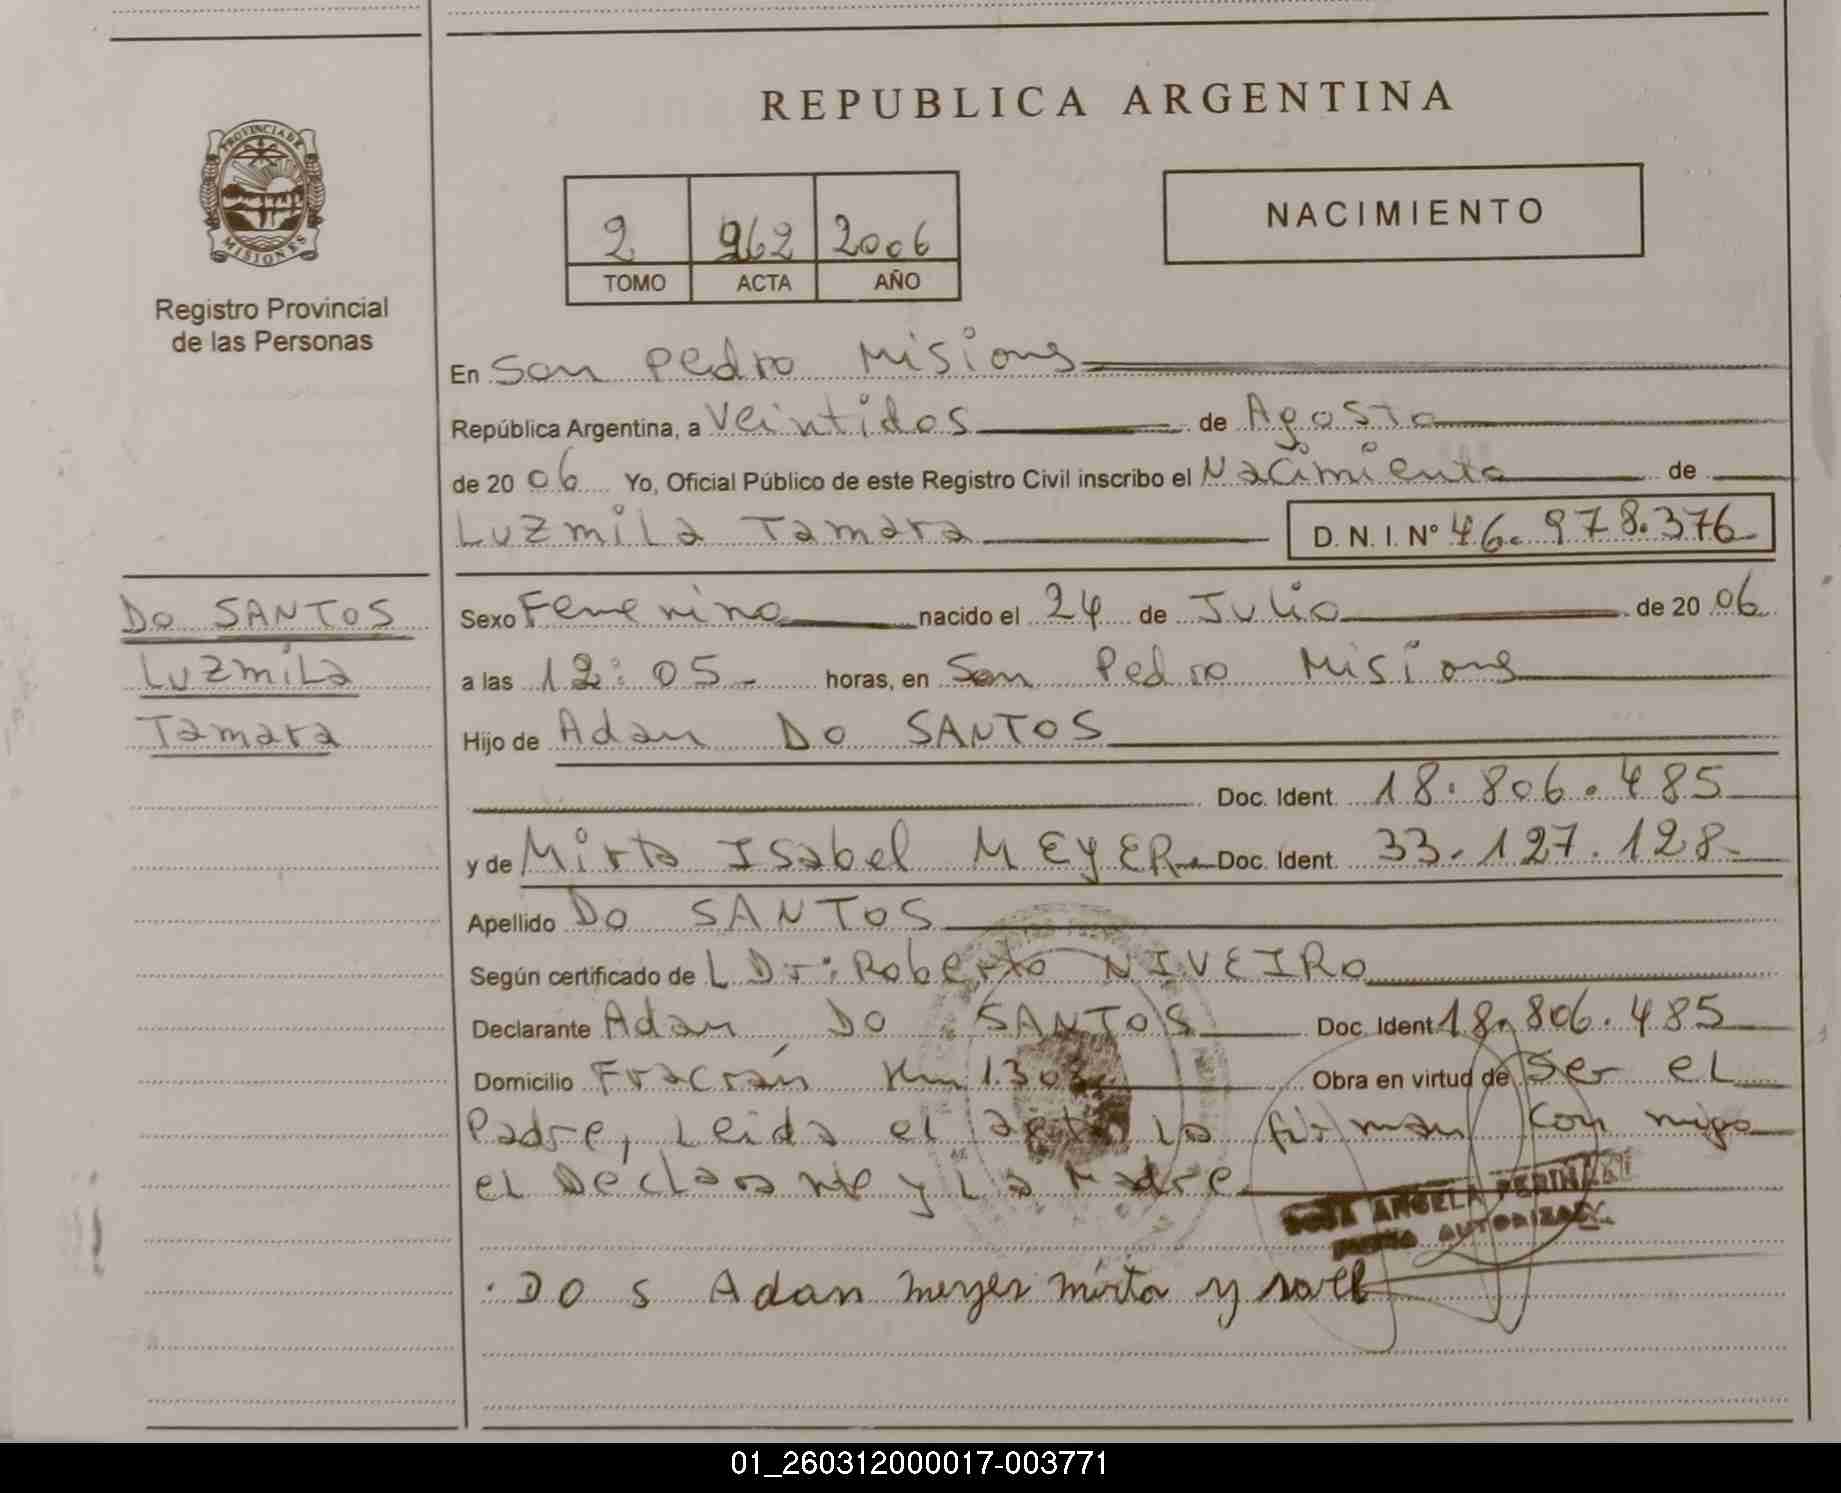 REPUBLICA ARGENTINA
PROVINCIA DE
MISIONES
Registro Provincial
de las Personas
2 962 2006
TOMO ACTA AÑO
NACIMIENTO
En San Pedro Misiones
República Argentina, a Veintidos de Agosto
de 20 06 Yo, Oficial Público de este Registro Civil inscribo el Nacimiento de
Luzmila Tamara D. N. I. Nº 46.978.376
Do SANTOS
Luzmila
Tamara
Sexo Femenino nacido el 24 de Julio de 20 06
a las 12:05 horas, en San Pedro Misiones
Hijo de Adan Do SANTOS
Doc. Ident. 18.806.485
y de Mirta Isabel MEYER Doc. Ident. 33.127.128
Apellido Do SANTOS
Según certificado de L Dr: Roberto NIVEIRO
Declarante Adan Do SANTOS Doc. Ident 18.806.485
Domicilio Fracrán Km 1.302 Obra en virtud de Ser el
Padre, Leida el acta La firman con migo
el Declarante y La Madre
ROSA ANGELA
FIRMA AUTORIZADA
Do S Adan meyer mirta y
01_260312000017-003771